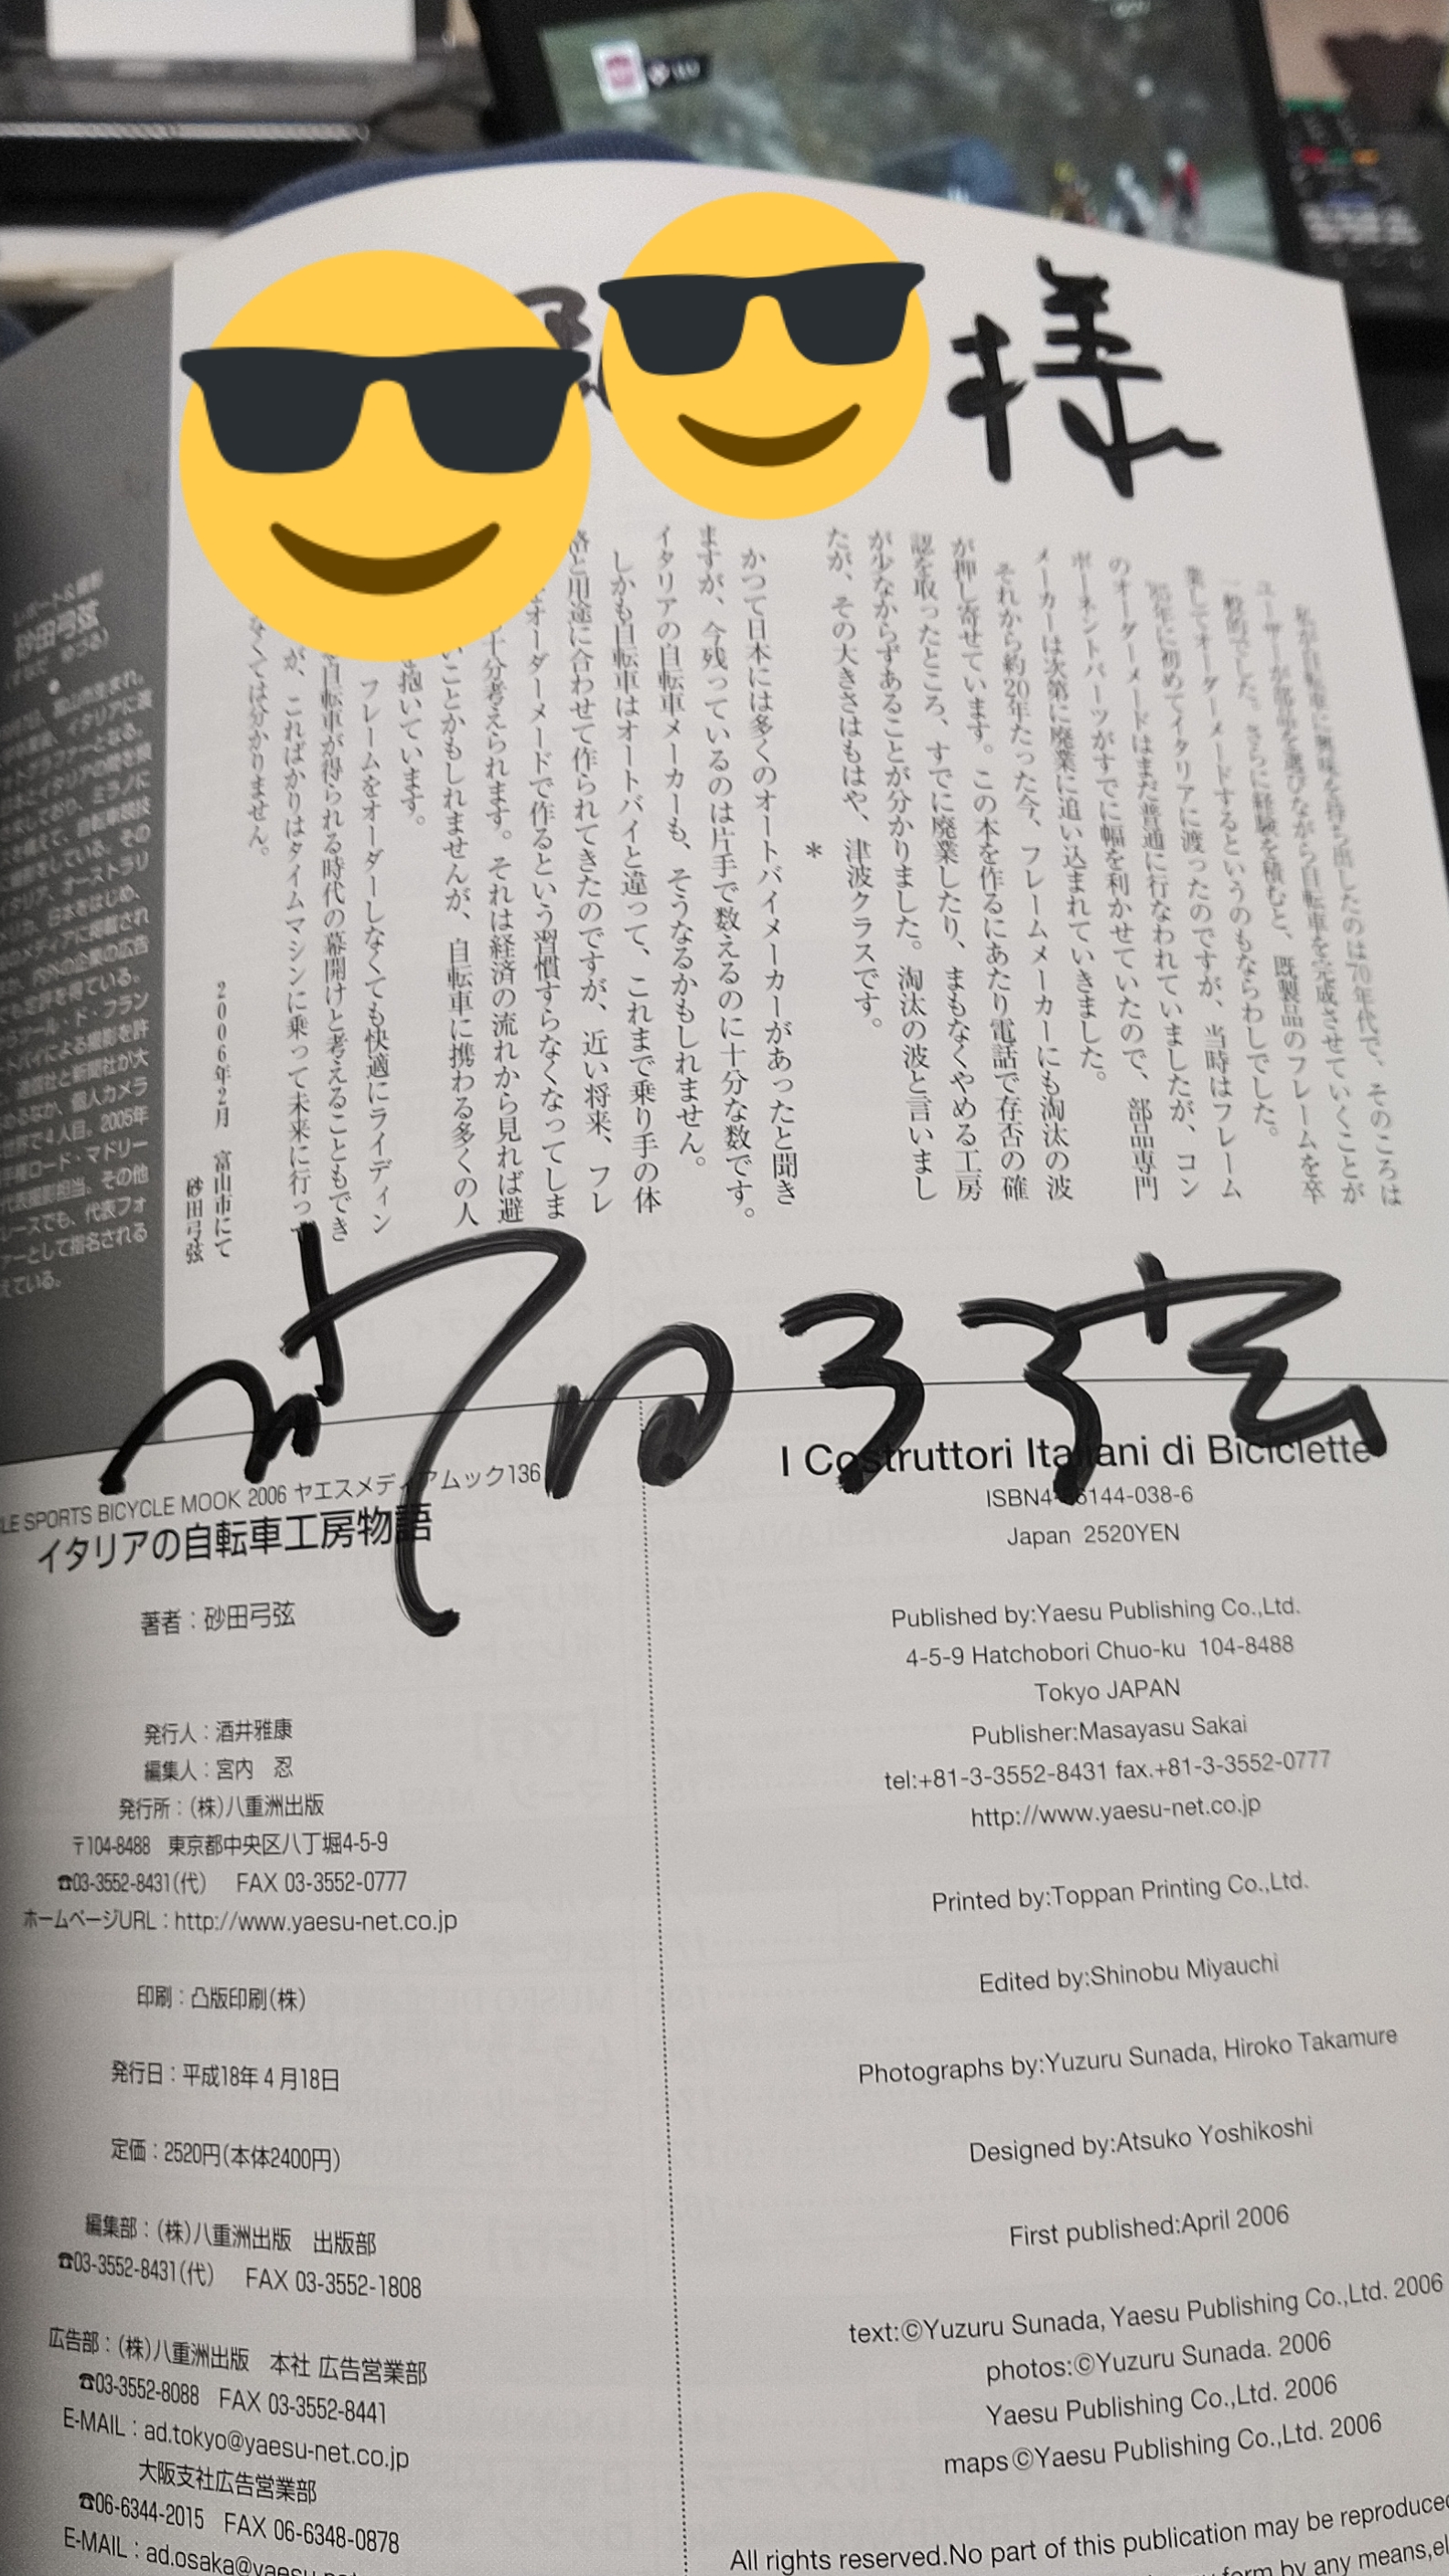 様
私が自転車に興味を持ち出したのは70年代で、そのころは
ユーザーが部品を選びながら自転車を完成させていくことが
一般的でした。さらに経験を積むと、既製品のフレームを卒
業してオーダーメードするというのもならわしでした。
'85年に初めてイタリアに渡ったのですが、当時はフレーム
のオーダーメードはまだ普通に行なわれていましたが、コン
ポーネントパーツがすでに幅を利かせていたので、部品専門
メーカーは次第に廃業に追い込まれていきました。
それから約20年たった今、フレームメーカーにも淘汰の波
が押し寄せています。この本を作るにあたり電話で存否の確
認を取ったところ、すでに廃業したり、まもなくやめる工房
が少なからずあることが分かりました。淘汰の波と言いまし
たが、その大きさはもはや、津波クラスです。
＊
かつて日本には多くのオートバイメーカーがあったと聞き
ますが、今残っているのは片手で数えるのに十分な数です。
イタリアの自転車メーカーも、そうなるかもしれません。
しかも自転車はオートバイと違って、これまで乗り手の体
格と用途に合わせて作られてきたのですが、近い将来、フレ
をオーダーメードで作るという習慣すらなくなってしま
十分考えられます。それは経済の流れから見れば避
いことかもしれませんが、自転車に携わる多くの人
抱いています。
フレームをオーダーしなくても快適にライディン
自転車が得られる時代の幕開けと考えることもでき
が、こればかりはタイムマシンに乗って未来に行っ
なくては分かりません。
2006年2月 富山市にて
砂田弓弦
レポート&撮影
砂田弓弦
(すなだ ゆづる)
富山市生まれ。
イタリアに渡
トグラファーとなる。
ミラノに
自転車競技
その
オーストラリ
日本をはじめ、
のメディアに掲載され
の広告
でも定評を得ている。
ツール・ド・フラン
トバイによる撮影を許
通信社と新聞社が大
めるなか、個人カメラ
世界で4人目。2005年
手権ロード・マドリー
代表撮影担当。その他
レースでも、代表フォ
ァーとして指名される
えている。
砂田弓弦
LE SPORTS BICYCLE MOOK 2006 ヤエスメディアムック136
イタリアの自転車工房物語
著者：砂田弓弦
発行人：酒井雅康
編集人：宮内 忍
発行所：(株)八重洲出版
〒104-8488 東京都中央区八丁堀4-5-9
☎03-3552-8431(代) FAX 03-3552-0777
ホームページURL：http://www.yaesu-net.co.jp
印刷：凸版印刷(株)
発行日：平成18年4月18日
定価：2520円(本体2400円)
編集部：(株)八重洲出版 出版部
☎03-3552-8431(代) FAX 03-3552-1808
広告部：(株)八重洲出版 本社 広告営業部
☎03-3552-8088 FAX 03-3552-8441
E-MAIL：ad.tokyo@yaesu-net.co.jp
大阪支社広告営業部
☎06-6344-2015 FAX 06-6348-0878
E-MAIL：ad.osaka@yaesu-net
I Costruttori Italiani di Biciclette
ISBN4- 6144-038-6
Japan 2520YEN
Published by:Yaesu Publishing Co.,Ltd.
4-5-9 Hatchobori Chuo-ku 104-8488
Tokyo JAPAN
Publisher:Masayasu Sakai
tel:+81-3-3552-8431 fax.+81-3-3552-0777
http://www.yaesu-net.co.jp
Printed by:Toppan Printing Co.,Ltd.
Edited by:Shinobu Miyauchi
Photographs by:Yuzuru Sunada, Hiroko Takamure
Designed by:Atsuko Yoshikoshi
First published:April 2006
text:©Yuzuru Sunada, Yaesu Publishing Co.,Ltd. 2006
photos:©Yuzuru Sunada. 2006
Yaesu Publishing Co.,Ltd. 2006
maps©Yaesu Publishing Co.,Ltd. 2006
All rights reserved.No part of this publication may be reproduced
form by any means,el